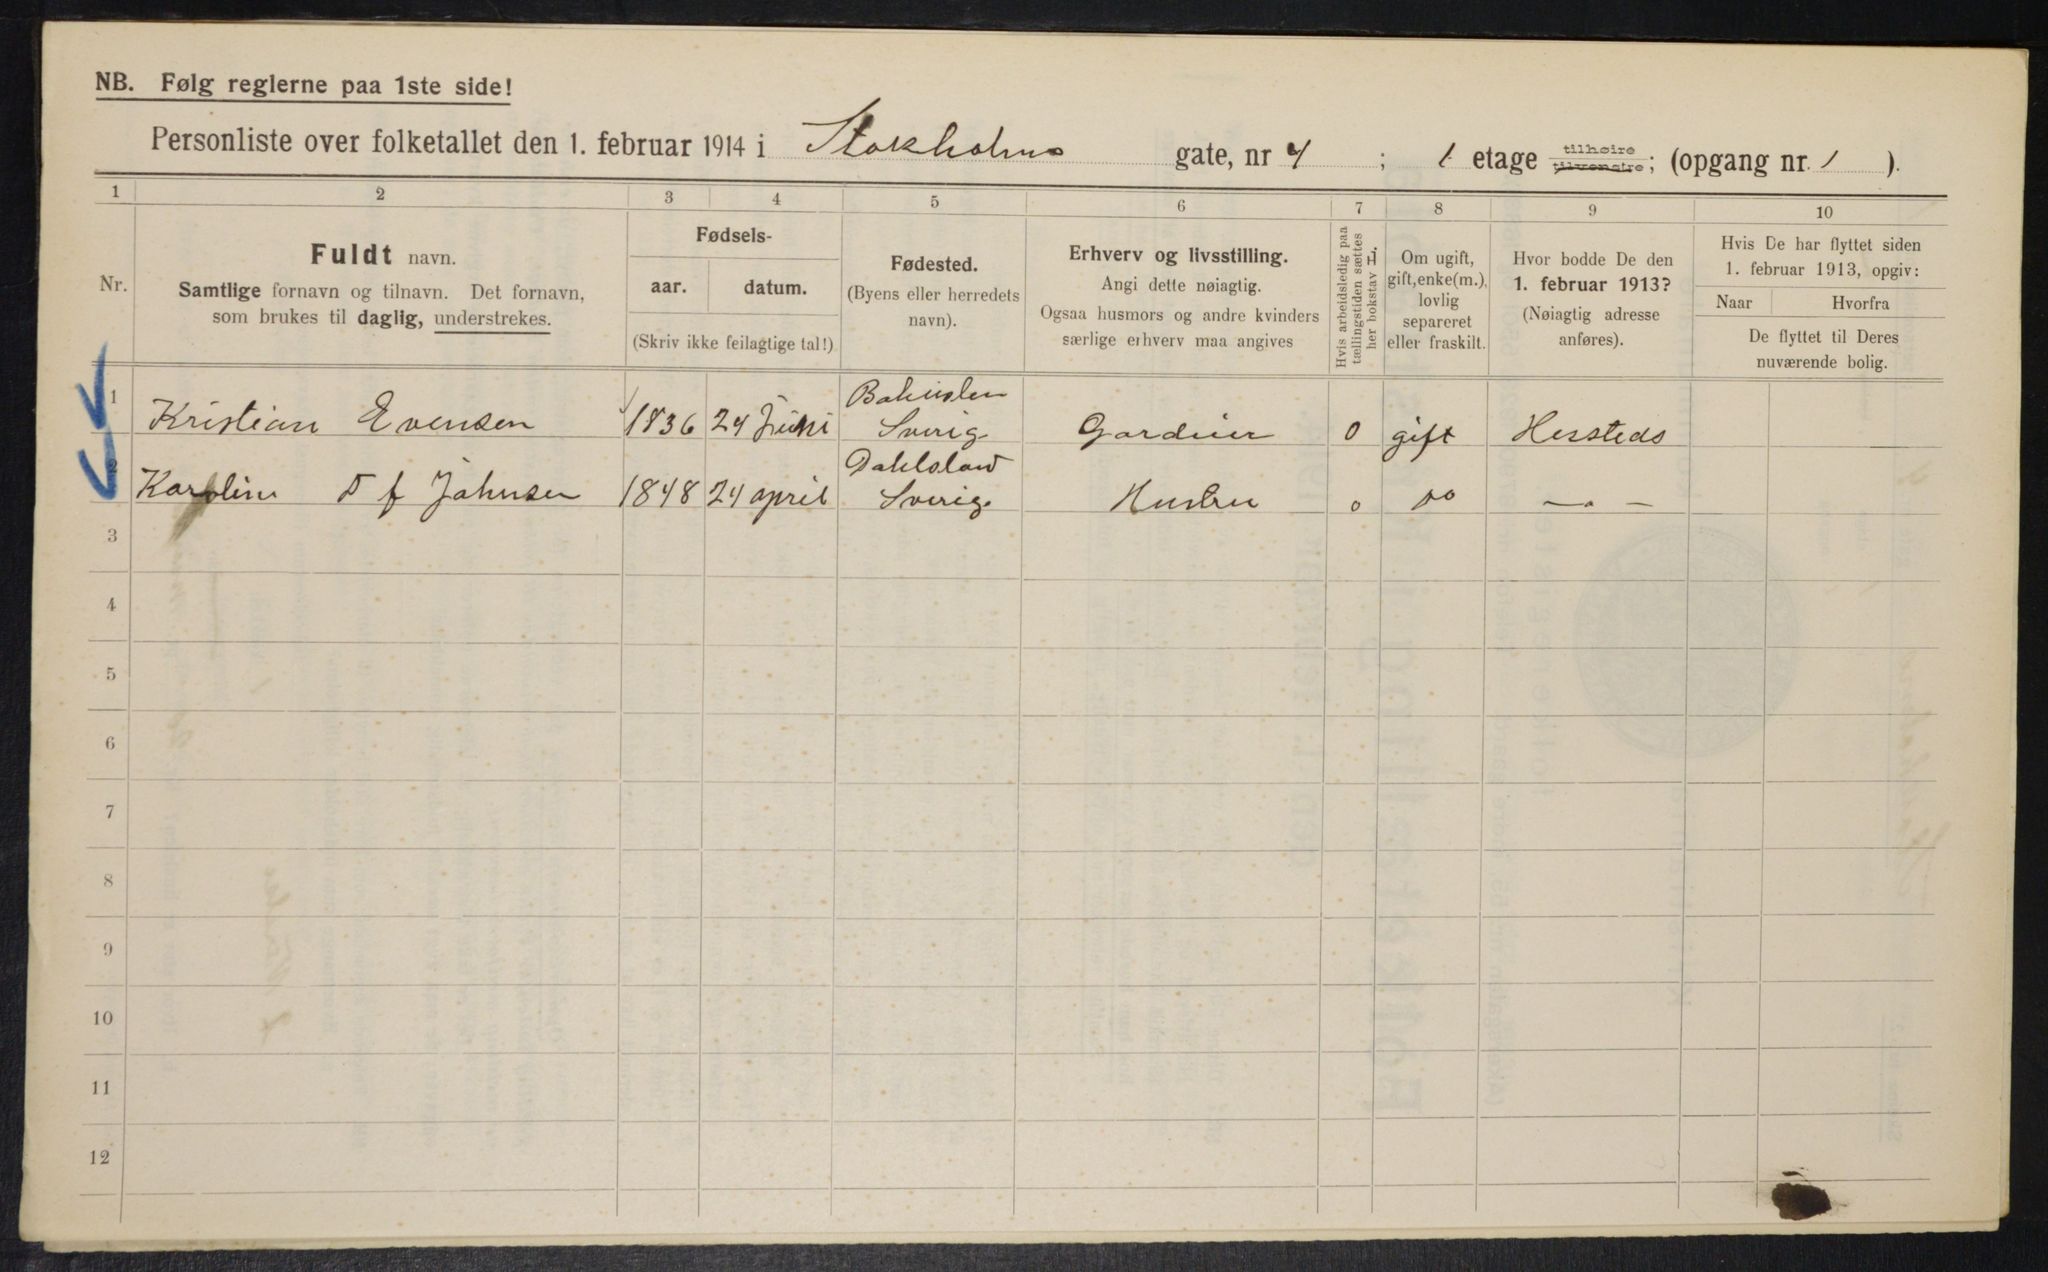 NB. Følg reglerne paa 1ste side!
Personliste over folketallet den 1. februar 1914 i Stokholms gate, nr 4 ; 1 etage tilhøire tilvenstre; (opgang nr. 1 ).
1 2 3 4 5 6 7 8 9 10
Nr.
Fuldt navn.
Samtlige fornavn og tilnavn. Det fornavn,
som brukes til daglig, understrekes.
Fødsels-
aar. datum.
(Skriv ikke feilagtige tal!)
Fødested.
(Byens eller herredets
navn).
Erhverv og livsstilling.
Angi dette nøiagtig.
Ogsaa husmors og andre kvinders
særlige erhverv maa angives
Hvis arbeidsledig paa
tællingstiden sættes
her bokstav H.
Om ugift,
gift, enke(m.),
lovlig
separeret
eller fraskilt.
Hvor bodde De den
1. februar 1913?
(Nøiagtig adresse
anføres).
Hvis De har flyttet siden
1. februar 1913, opgiv:
Naar Hvorfra
De flyttet til Deres
nuværende bolig.
1 Kristian Evensen 1836 24 Juni Bahuslen Sverig Gardeier 0 gift Hersteds
2 Karolin D f Johnsen 1848 24 april Dahlsland Sverig. Hustru o Do — . —
3
4
5
6
7
8
9
10
11
12